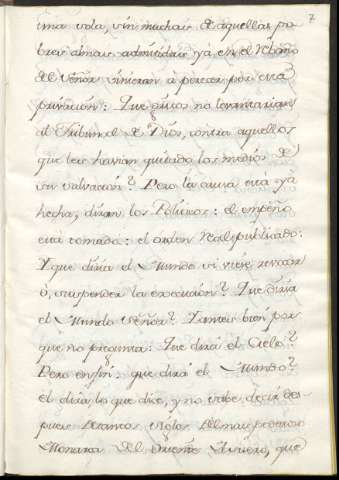 7
una sola, sin muchas de aquellas po
bres almas admitidas ya en el Rebaño
del Señor vinieran à perecer por esta
privacion: Que gritos no levantarian
al Tribunal de Dios, contra aquellos
que les havian quitado los medios de
su salvacion? Pero la causa está ya
hecha, diran los Politicos: el empeño
está tomado: el orden Real publicado:
Y que diria el Mundo si viese revocar
ó, suspender la execucion? Que diria
el Mundo Señor? Y antes bien por
que no pregunta: Que dirá el Cielo?
Pero en fin: que dirá el Mundo?
el dirá, lo que dice, y no sabe decir des-
pues de tantos siglos del mas poderoso
Monarca del Oriente Asuero, que